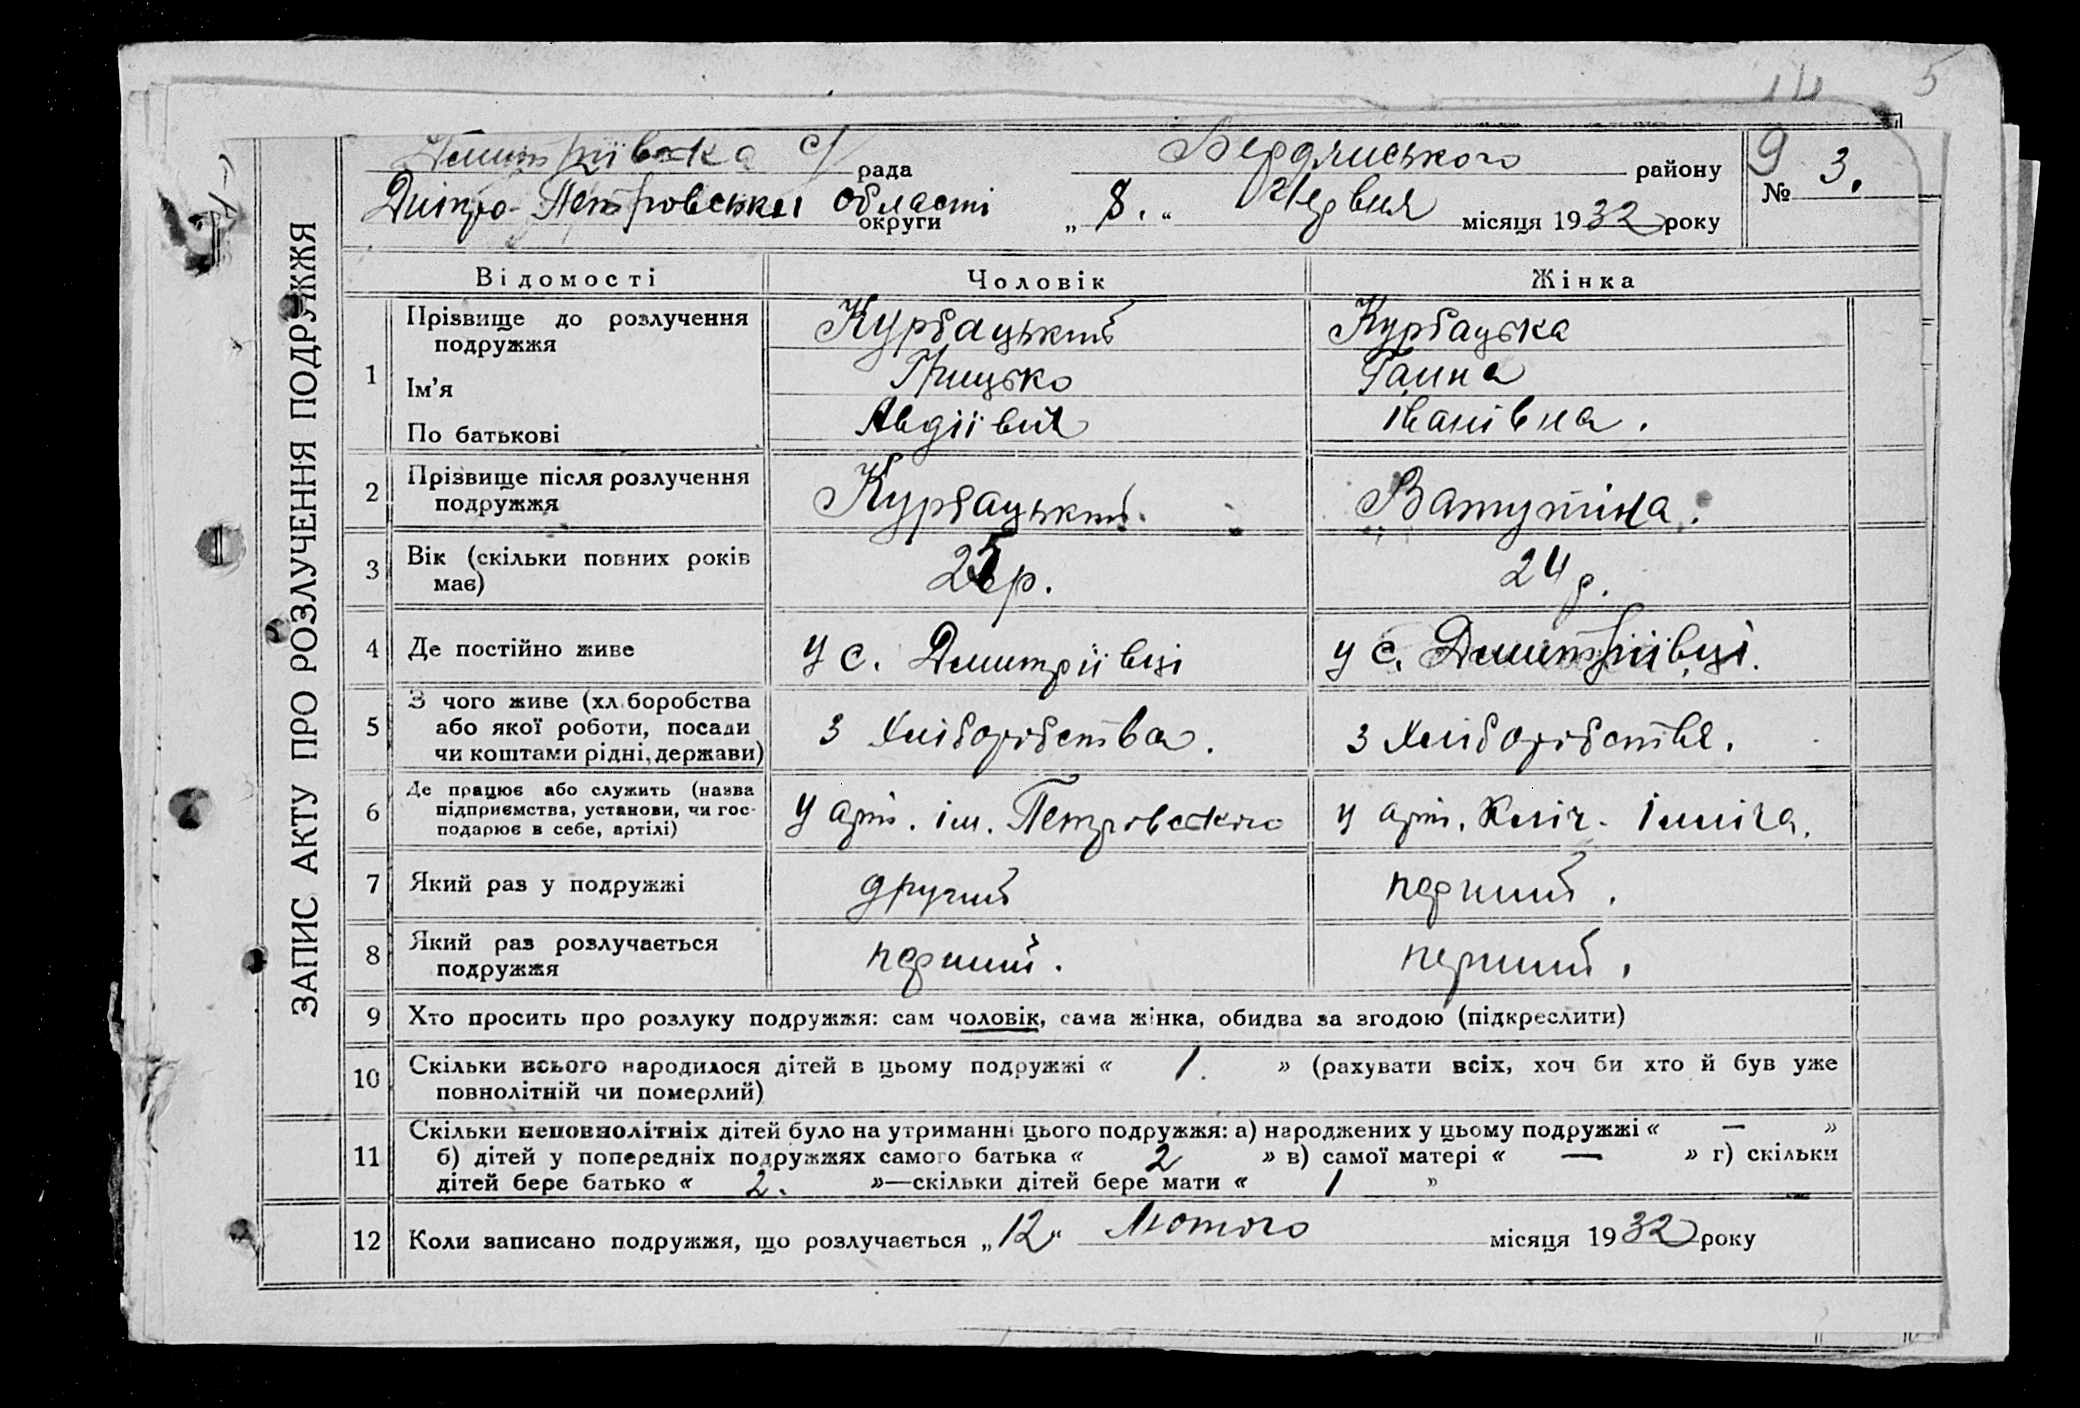 14 5
Дмитрівська с/рада Бердянського району 9
Дніпро-Петровської області округи „8.“ Червня місяця 1932 року № 3.
ЗАПИС АКТУ ПРО РОЗЛУЧЕННЯ ПОДРУЖЖЯ
Відомості Чоловік Жінка
1 Прізвище до розлучення подружжя Курбацький Курбацька
Ім'я Грицько Ганна
По батькові Авдіївич Іванівна.
2 Прізвище після розлучення подружжя Курбацький. Ватутіна.
3 Вік (скільки повних років має) 25 р. 24 р.
4 Де постійно живе у с. Дмитріївці у с. Дмитріївці.
5 З чого живе (хліборобства
або якої роботи, посади
чи коштами рідні, держави) з Хліборобства. з Хліборобства.
6 Де працює або служить (назва
підприємства, установи, чи гос-
подарює в себе, артілі) у арт. ім. Петровского у арт. Ілліча.
7 Який раз у подружжі другий перший.
8 Який раз розлучається
подружжя перший. перший.
9 Хто просить про розлуку подружжя: сам чоловік, сама жінка, обидва за згодою (підкреслити)
10 Скільки всього народилося дітей в цьому подружжі « 1. » (рахувати всіх, хоч би хто й був уже
повнолітній чи померлий)
11 Скільки неповнолітніх дітей було на утриманні цього подружжя: а) народжених у цьому подружжі « — »
б) дітей у попередніх подружжях самого батька « 2 » в) самої матері « — » г) скільки
дітей бере батько « 2. »—скільки дітей бере мати « 1 »
12 Коли записано подружжя, що розлучається „12“ Лютого місяця 1932 року